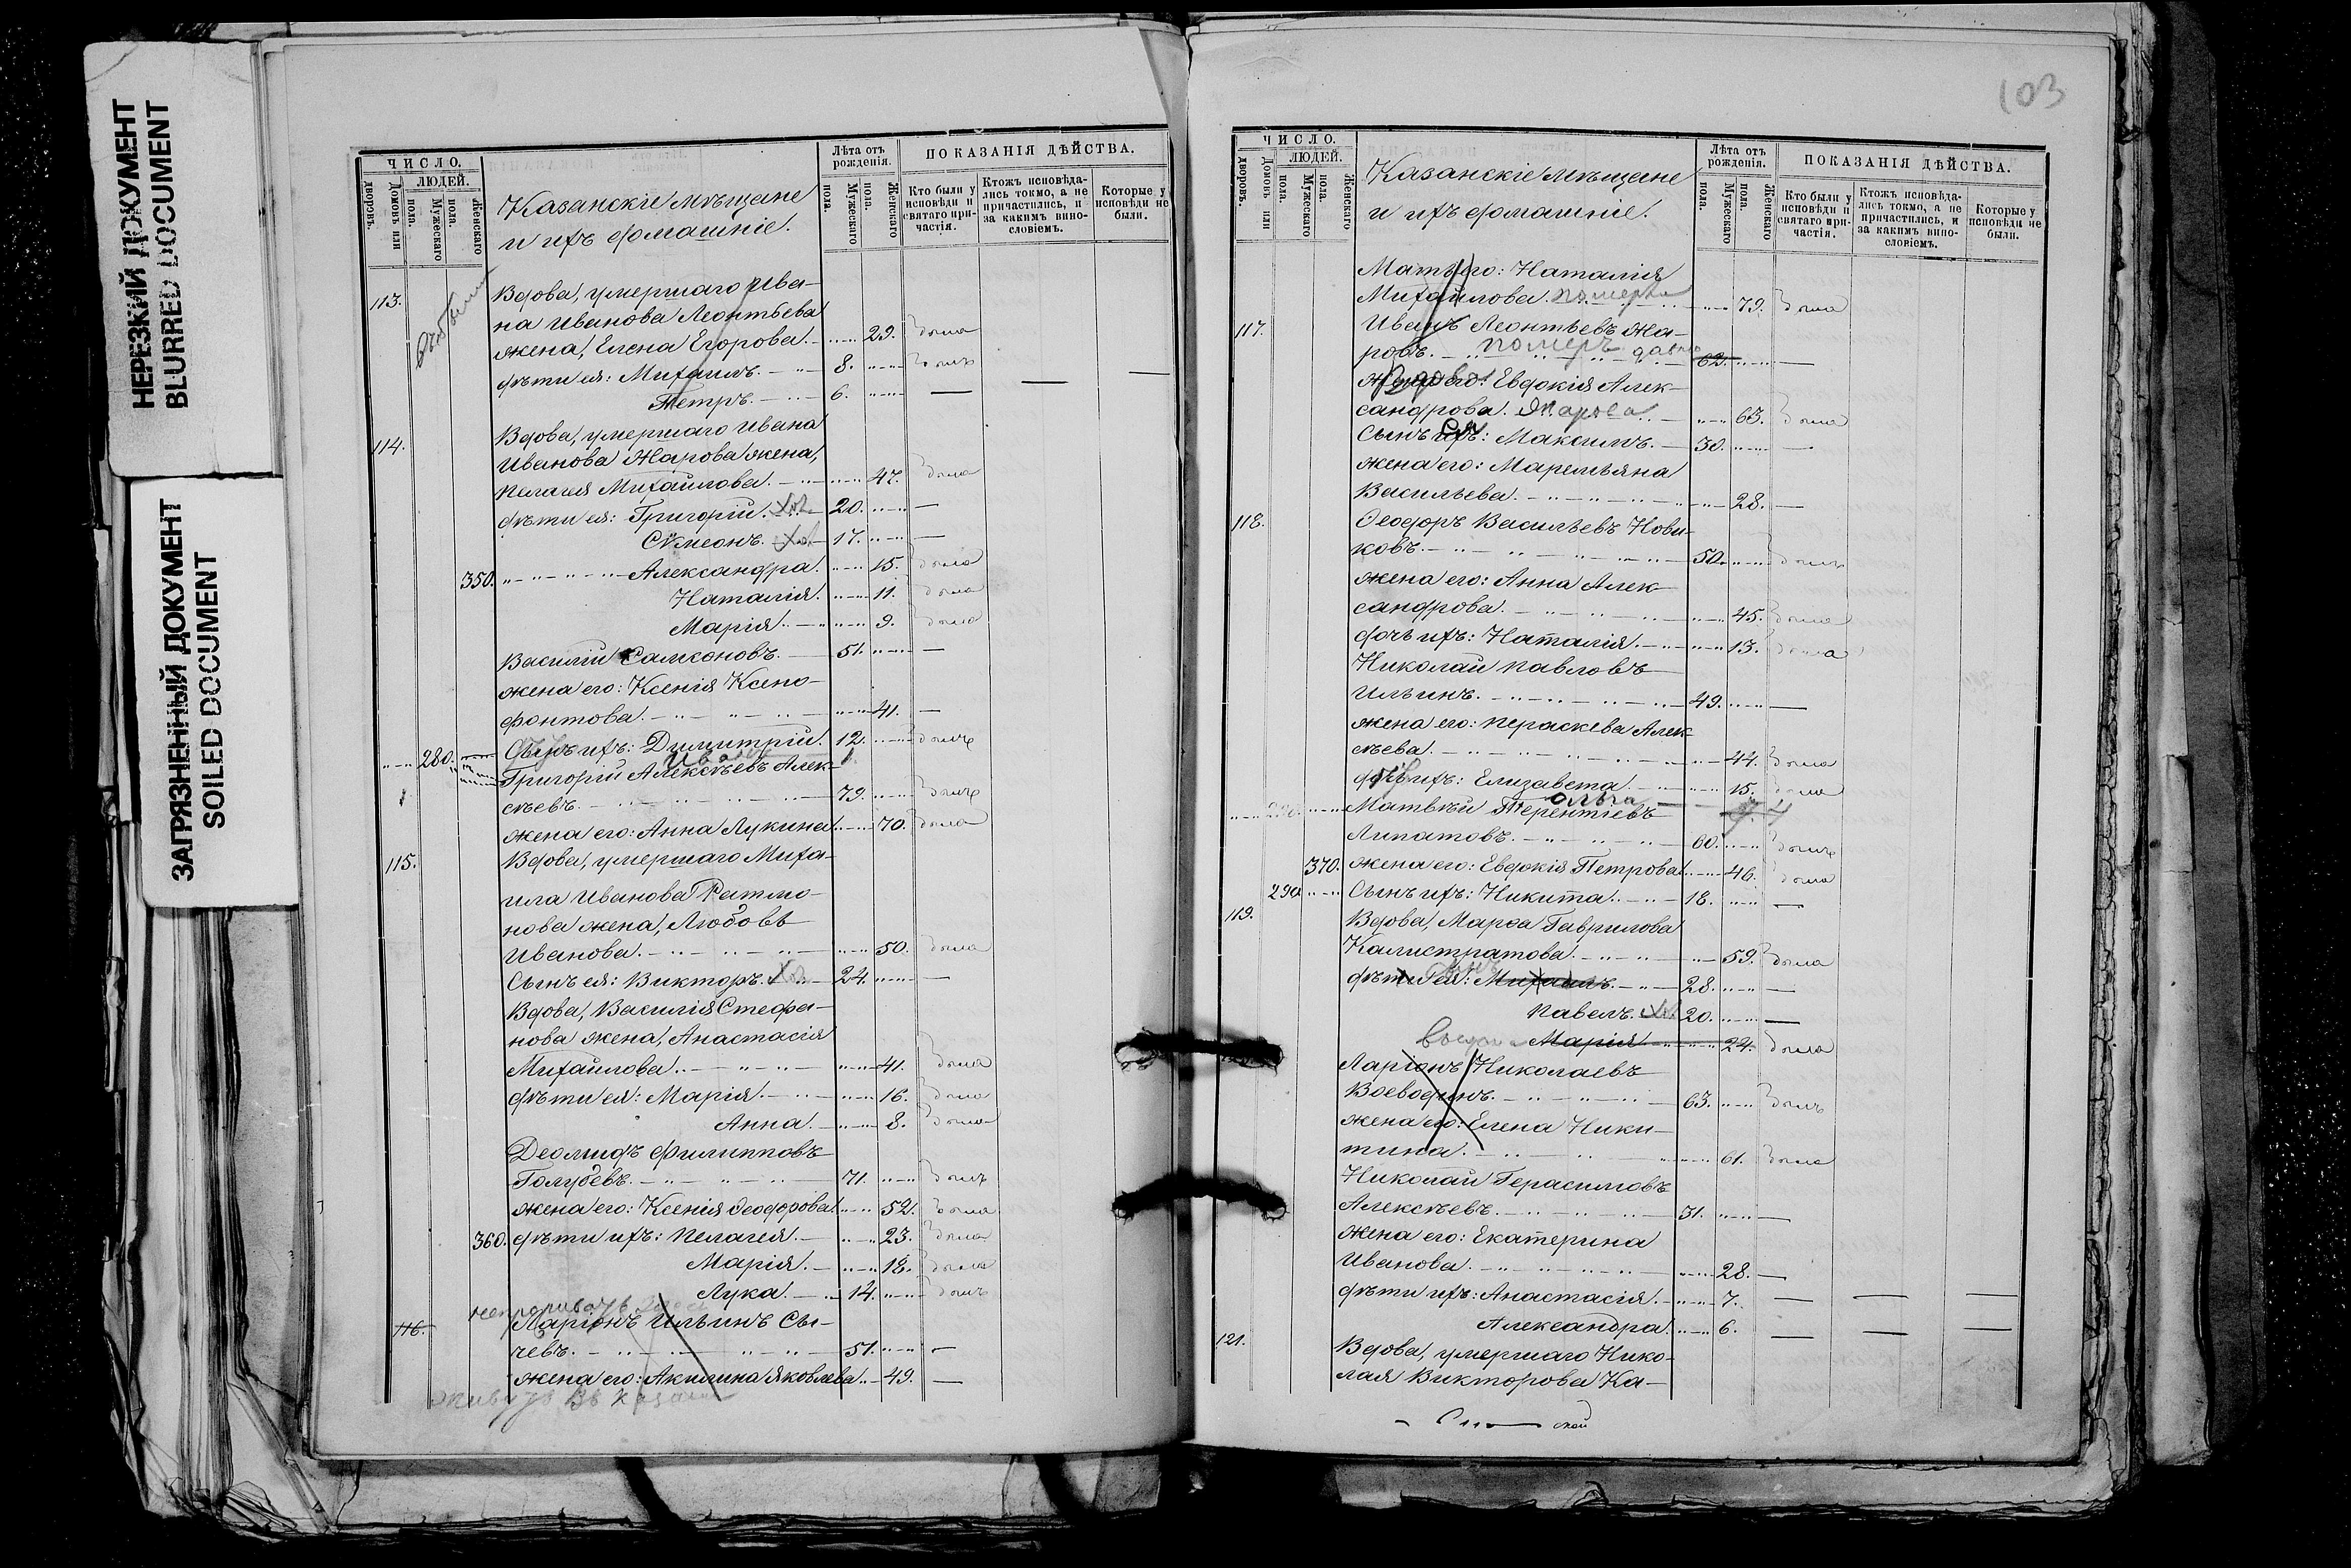 НЕРЕЗКИЙ ДОКУМЕНТ
BLURRED DOCUMENT
ЗАГРЯЗНЕННЫЙ ДОКУМЕНТ
SOILED DOCUMENT
ЧИСЛО.
ЛЮДЕЙ.
Домовъ или дворовъ.
Мужескаго пола.
Женскаго пола.
Казанскіе мѣщане
и ихъ домашніе.
Лѣта отъ рожденія.
Мужескаго пола.
Женскаго пола.
ПОКАЗАНІЯ ДѢЙСТВА.
Кто были у исповѣди и святаго причастія.
Ктожъ исповѣдались токмо, а не причастились, и за какимъ винословіемъ.
Которые у исповѣди не были.
113. Вдова, умершаго Ива-
на Иванова Леонтьева
жена, Елена Егорова. 29. была
дѣти ея: Михаилъ. 8. былъ
Петръ. 6. —
114. Вдова, умершаго Ивана
Иванова Жарова жена,
Пелагея Михайлова. 47. была
дѣти ея: Григорій. 20. —
Сѵмеонъ. 17. —
350. Александра. 15. была
Наталія. 11. была
Марія. 9. была
Василій Самсоновъ. 51. —
жена его: Ксенія Ксено-
фонтова. 41. —
280. Сынъ ихъ: Димитрій. 12. былъ
Иванъ 1.
Григорій Алексѣевъ Алек-
сѣевъ. 79. былъ
жена его: Анна Лукина. 70. была
115. Вдова, умершаго Миха-
ила Иванова Ратмо-
нова жена, Любовь
Иванова. 50. была
Сынъ ея: Викторъ. 24. —
Вдова, Василія Стефа-
нова жена, Анастасія
Михайлова. 41. была
дѣти ея: Марія. 16. была
Анна. 8. была
Деомидъ Филипповъ
Голубевъ. 71. былъ
жена его: Ксенія Ѳеодорова. 52. была
360. дѣти ихъ: Пелагея. 23. была
Марія. 18. была
Лука. 14. былъ
116. Ларіонъ Ильинъ Сы-
чевъ. 51. —
жена его: Акилина Яковлева. 49. —
живутъ въ Казани
103
ЧИСЛО.
ЛЮДЕЙ.
Домовъ или дворовъ.
Мужескаго пола.
Женскаго пола.
Казанскіе мѣщане
и ихъ домашніе.
Лѣта отъ рожденія.
Мужескаго пола.
Женскаго пола.
ПОКАЗАНІЯ ДѢЙСТВА.
Кто были у исповѣди и святаго причастія.
Ктожъ исповѣдались токмо, а не причастились, и за какимъ винословіемъ.
Которые у исповѣди не были.
Мать его: Наталія
Михайлова. померла 79. была
117. Иванъ Леонтьевъ Жа-
ровъ. померъ давно 62. —
Вдова
жена его: Евдокія Алек-
сандрова. Жарова 63. была
Сынъ ихъ: ея Максимъ. 30. —
жена его: Маремьяна
Васильева. 28. —
118. Ѳеодоръ Васильевъ Нови-
ковъ. 50. былъ
жена его: Анна Алек-
сандрова. 45. была
дочь ихъ: Наталія. 13. была
Николай Павловъ
Ильинъ. 49. —
жена его: Параскева Алек-
сѣева. 44. была
дочь ихъ: Елизавета. 15. была
Ольга 4
Матвѣй Терентіевъ
Липатовъ. 60. былъ
370. жена его: Евдокія Петрова. 46. была
290. Сынъ ихъ: Никита. 18. —
119. Вдова, Марѳа Гаврилова
Калистратова. 59. была
дѣти ея: Михаилъ. 28. —
Павелъ. 20. —
Марія. 24. была
Ларіонъ Николаевъ
Воеводинъ. 63. былъ
жена его: Елена Ники-
тина. 61. была
Николай Герасимовъ
Алексѣевъ. 31. —
жена его: Екатерина
Иванова. 28. —
дѣти ихъ: Анастасія. 7. — — —
Александра. 6. — — —
121. Вдова, умершаго Нико-
лая Викторова Ка-